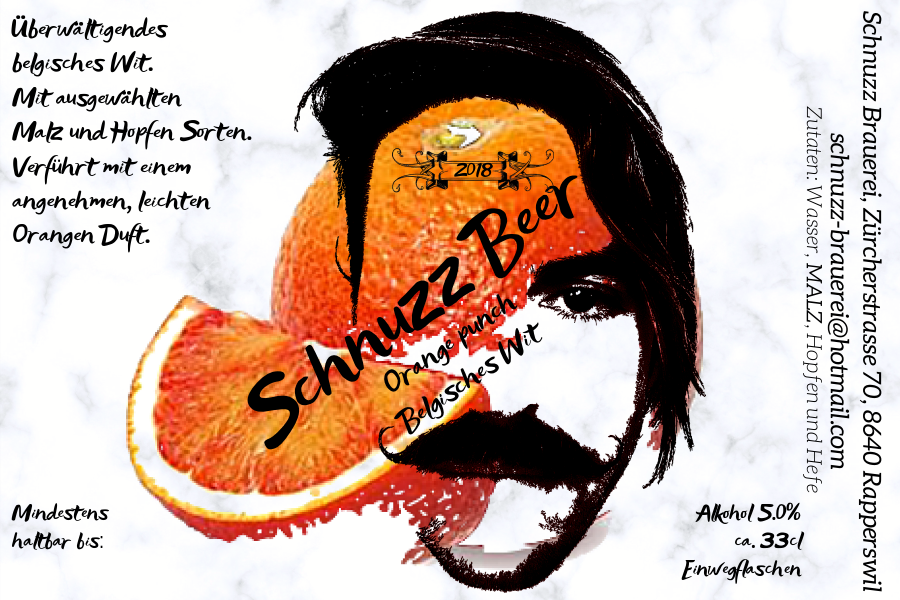 Überwältigendes
belgisches Wit.
Mit ausgewählten
Malz und Hopfen Sorten.
Verführt mit einem
angenehmen, leichten
Orangen Duft.
2018
Schnuzz Beer
Orange punch
Belgisches Wit
Mindestens
haltbar bis:
Alkohol 5.0%
ca. 33cl
Einwegflaschen
Schnuzz Brauerei, Zürcherstrasse 70, 8640 Rapperswil
schnuzz-brauerei@hotmail.com
Zutaten: Wasser, MALZ, Hopfen und Hefe